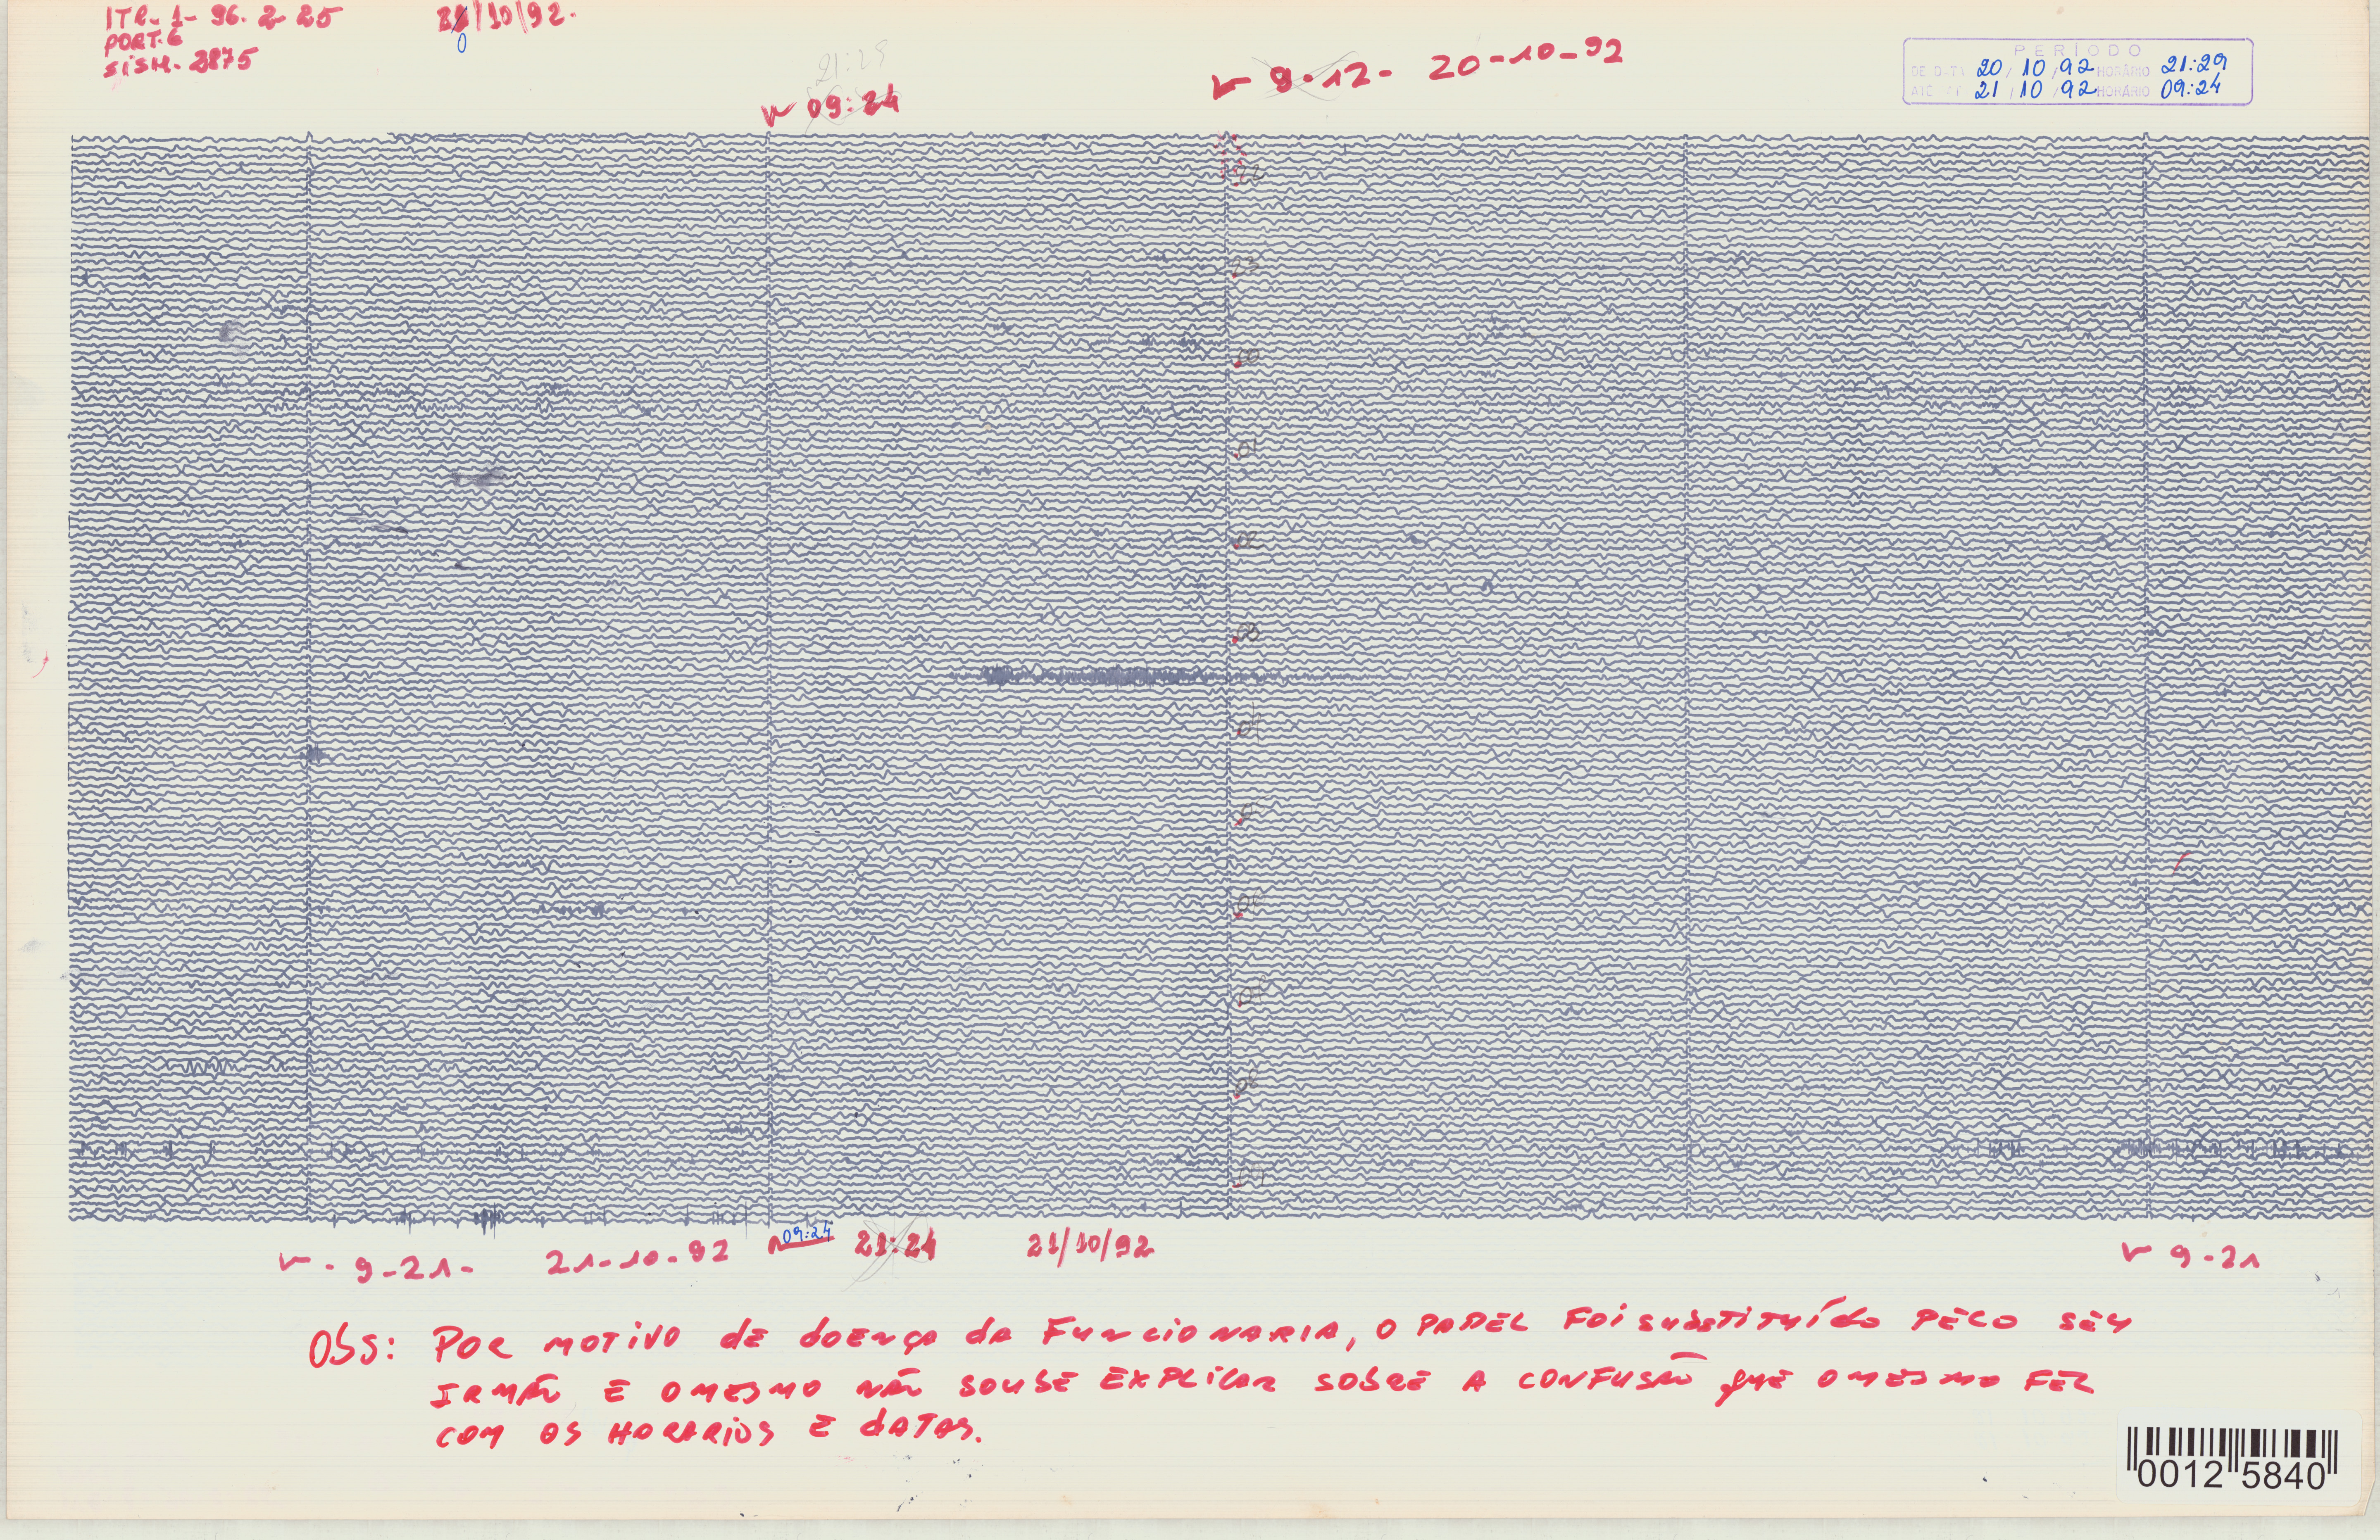 ITR-1- 96. 2- 25
PORT. 6
SISM. 3875
21/10/92.
0
21:29
09:24
9-12- 20-10-92
PERÍODO
DE 20/10/92 HORÁRIO 21:29
ATÉ 21/10/92 HORÁRIO 09:24
22
23
00
01
02
03
04
05
06
07
08
09
9-21- 21-10-92
09:24
21:24
21/10/92
9-21
OBS: POR MOTIVO DE DOENÇA DA FUNCIONARIA, O PAPEL FOI SUBSTITUÍDO PELO SEU
IRMÃO E O MESMO NÃO SOUBE EXPLICAR SOBRE A CONFUSÃO QUE O MESMO FEZ
COM OS HORARIOS E DATAS.
0012 5840